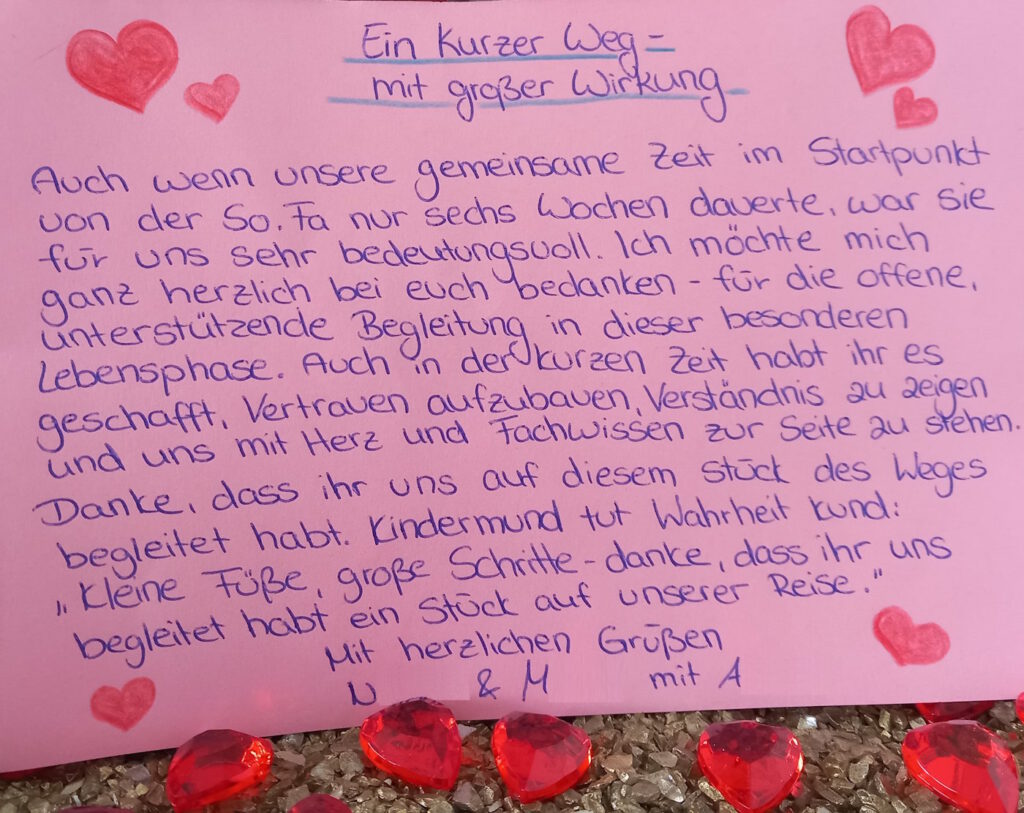 Ein kurzer Weg –
mit großer Wirkung
Auch wenn unsere gemeinsame Zeit im Startpunkt
von der So.Fa nur sechs Wochen dauerte, war sie
für uns sehr bedeutungsvoll. Ich möchte mich
ganz herzlich bei euch bedanken – für die offene,
unterstützende Begleitung in dieser besonderen
Lebensphase. Auch in der kurzen Zeit habt ihr es
geschafft, Vertrauen aufzubauen, Verständnis zu zeigen
und uns mit Herz und Fachwissen zur Seite zu stehen.
Danke, dass ihr uns auf diesem Stück des Weges
begleitet habt. Kindermund tut Wahrheit kund:
„Kleine Füße, große Schritte – danke, dass ihr uns
begleitet habt ein Stück auf unserer Reise."
Mit herzlichen Grüßen
N & M mit A